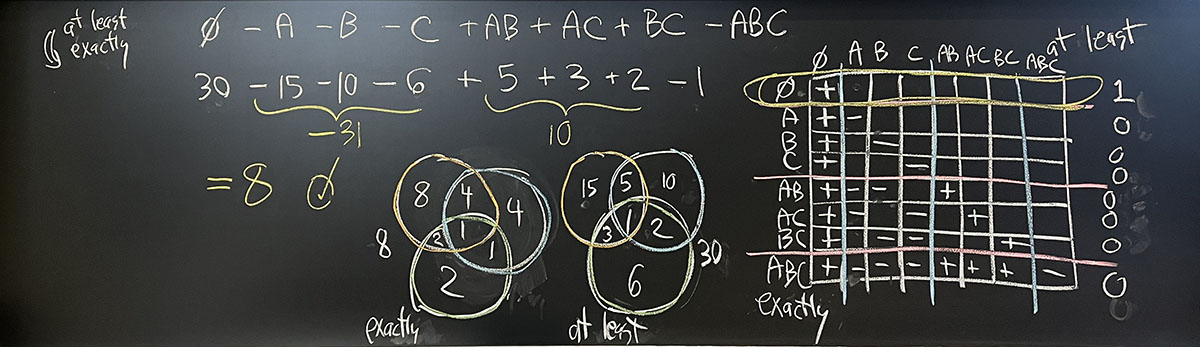 at least
exactly
∅ - A - B - C + AB + AC + BC - ABC
30 - 15 - 10 - 6 + 5 + 3 + 2 - 1
-31 10
= 8
8 4 4
2 1 1
2
8
exactly
15 5 10
3 1 2
6
30
at least
at least
∅ A B C AB AC BC ABC
∅ + 1
A + - 0
B + - 0
C + - 0
AB + - - + 0
AC + - - + 0
BC + - - + 0
ABC + - - - + + + - 0
exactly